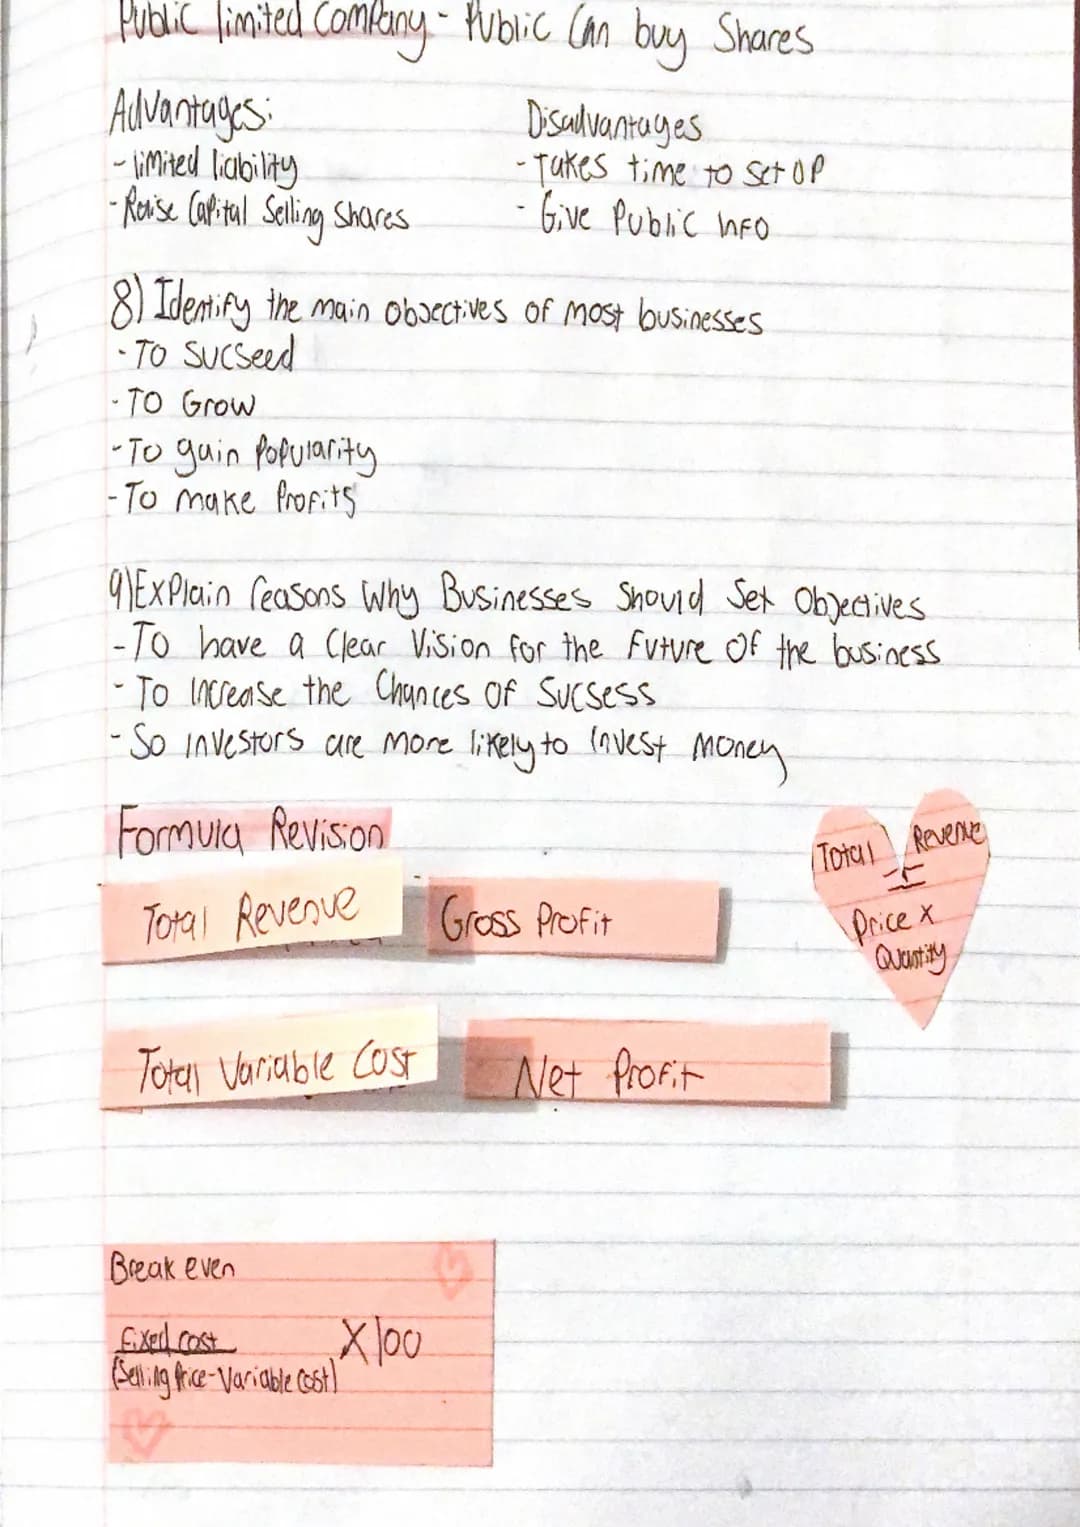 Public limited Company - Public Can buy Shares
Advantages:
- limited liability
- Raise Capital Selling Shares
Disadvantages
- Takes time to Set UP
- Give Public INFO
8) Identify the main objectives of most businesses
- To Sucseed
- To Grow
- To gain Popularity
- To make Profits
9) Explain reasons Why Businesses Should Set Objectives
- To have a Clear Vision for the Future OF the business
- To Increase the Chances OF Sucsess
- So investors are more likely to invest money
Formula Revision
Total Revenue
Gross Profit
Total Revenue
=
Price x
Quantity
Total Variable Cost
Net Profit
Break even
Fixed cost X100
(Selling Price-Variable Cost)